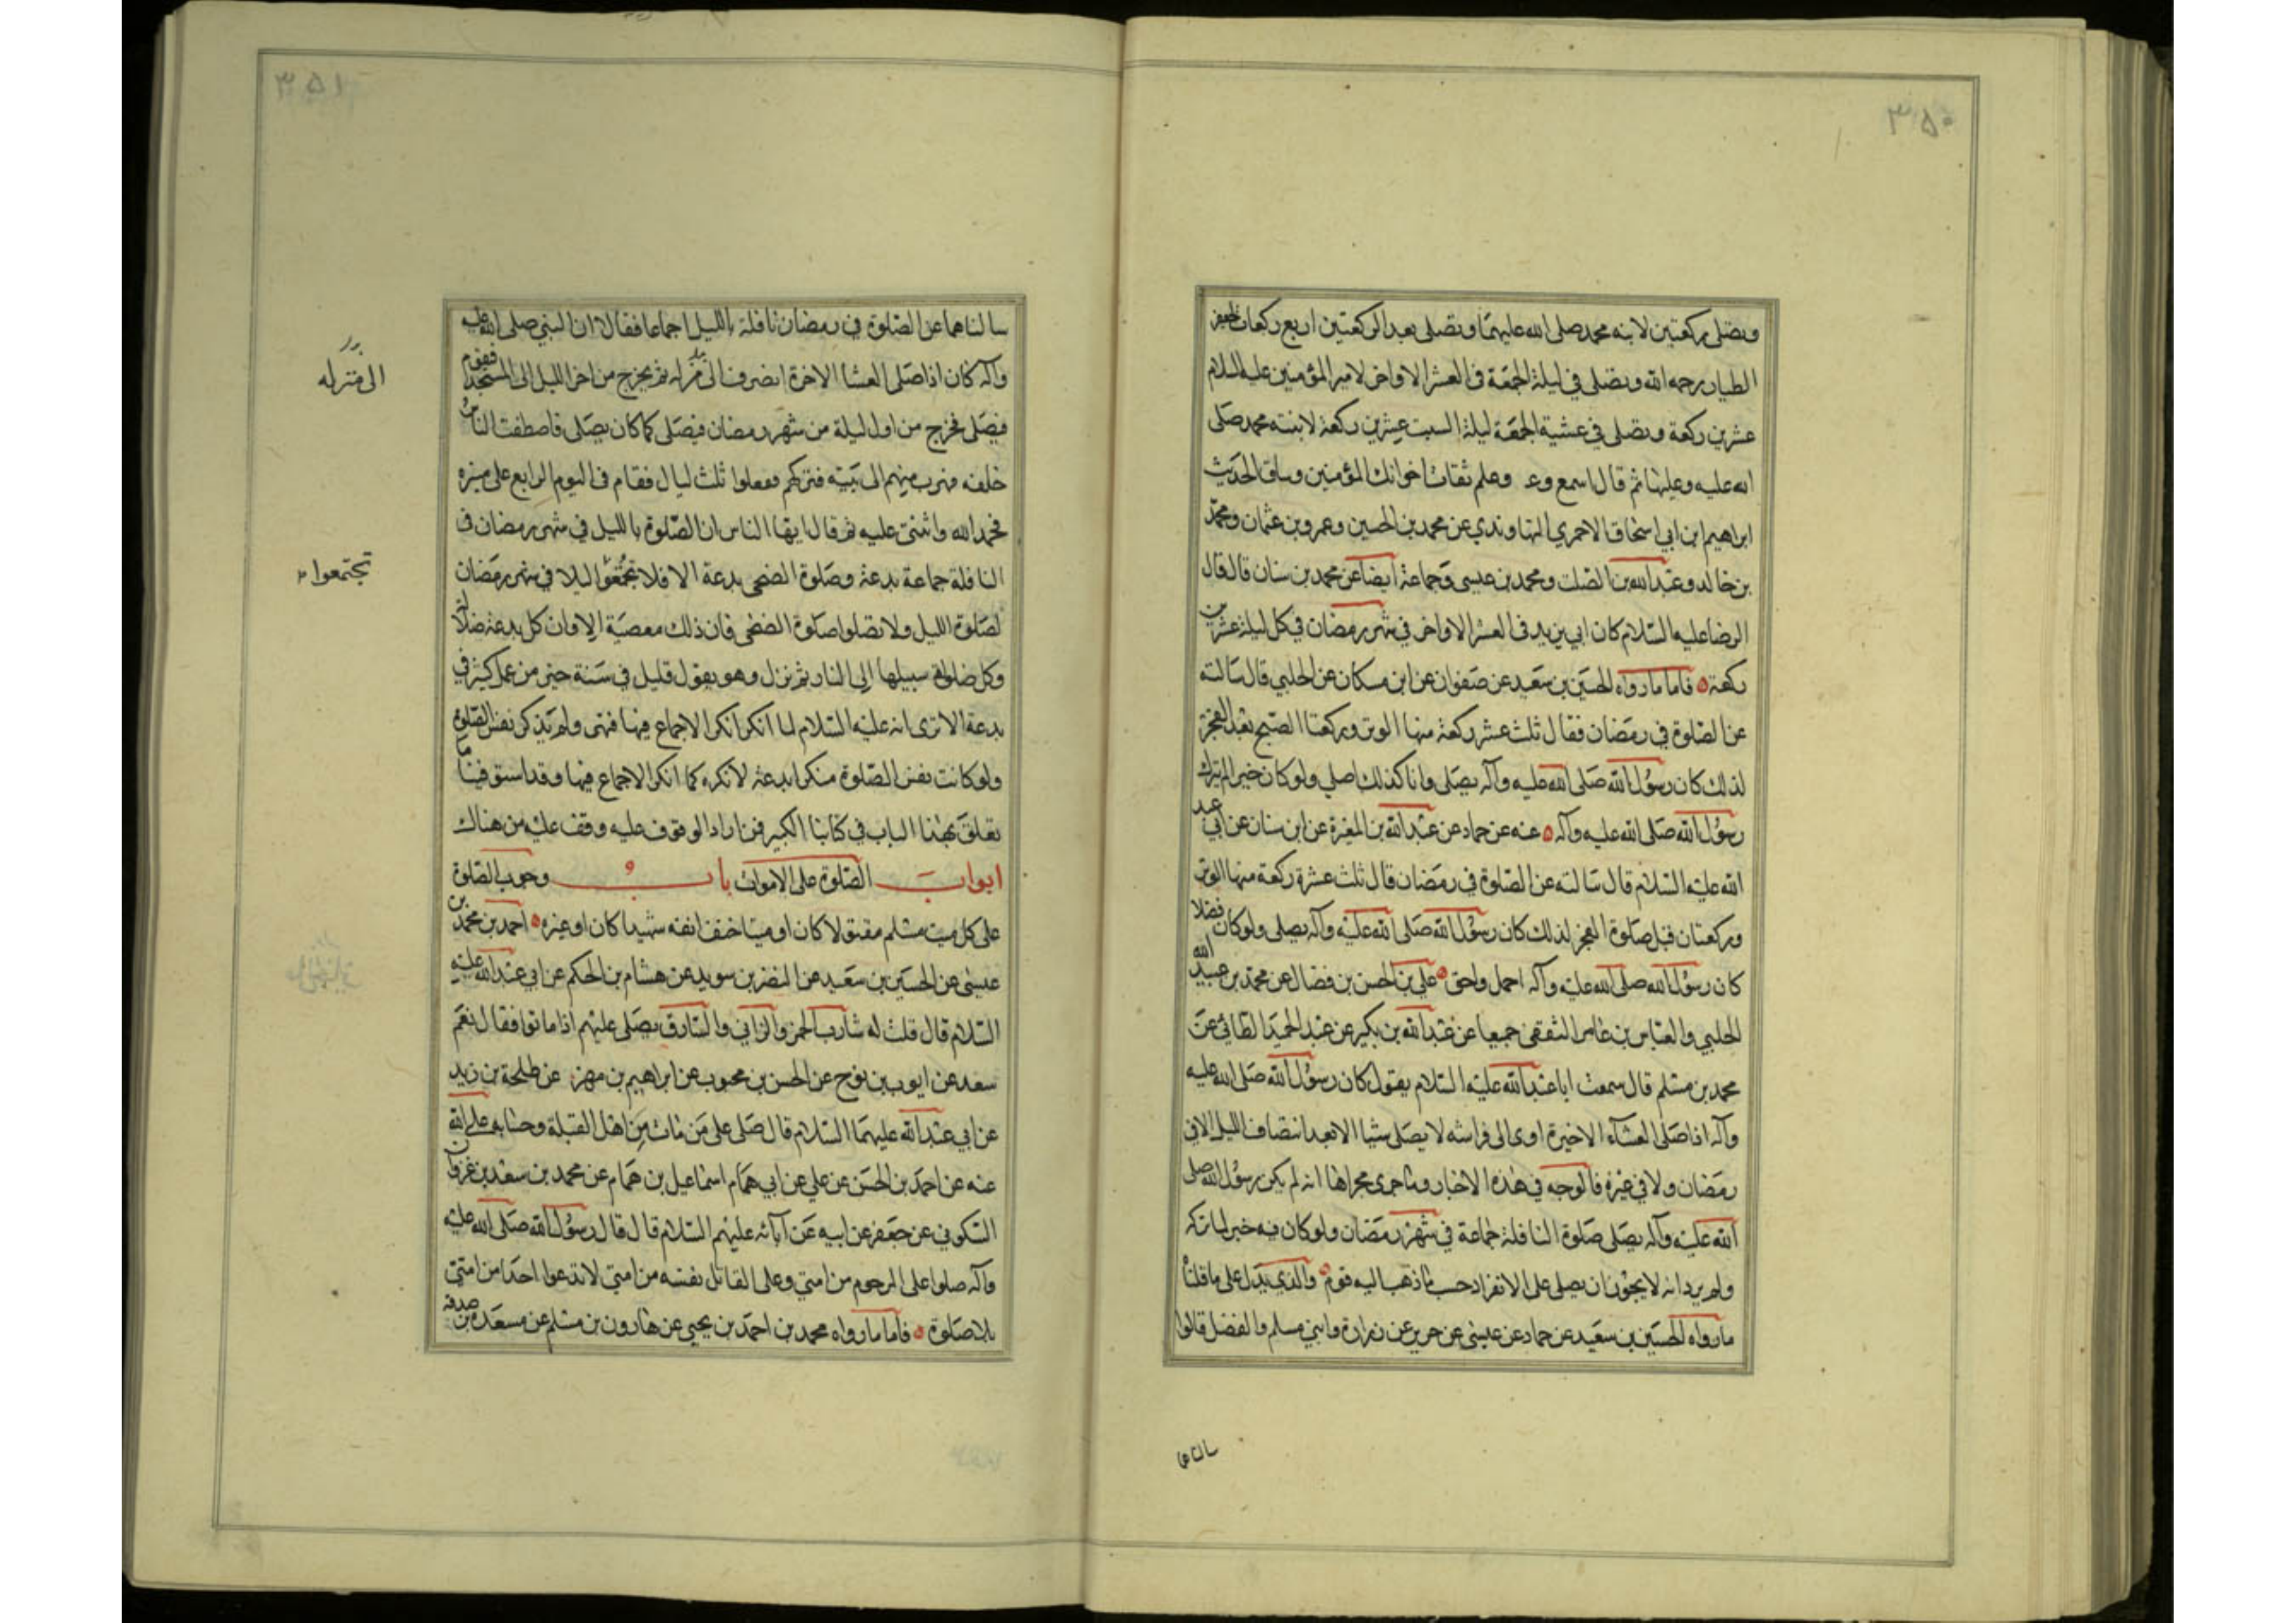 ٣٥٠
ويصلى ركعتين لابنه محمد صلى الله عليهما ويصلى بعد الركعتين اربع ركعات لجعفر
الطيار رحمه الله ويصلى فى ليلة الجمعة فى العشر الاواخر لامير المؤمنين عليه السلام
عشرين ركعة ويصلى فى عشية الجمعة ليلة السبت عشرين ركعة لابنته محمد صلى
الله عليه وعليها ثم قال اسمع وعه وعلم ثقات اخوانك المؤمنين وساق الحديث
ابراهيم ابن ابى اسحاق الاحمرى النهاوندى عن محمد بن الحسين وعمرو بن عثمان ومحمد
بن خالد وعبد الله بن الصلت ومحمد بن عيسى وجماعة ايضا عن محمد بن سنان قال قال
الرضا عليه السلام كان ابى يزيد فى العشر الاواخر فى شهر رمضان فى كل ليلة عشرين
ركعة فاما ما رواه الحسين بن سعيد عن صفوان عن ابن مسكان عن الحلبى قال سالته
عن الصلوة فى رمضان فقال ثلث عشر ركعة منها الوتر وركعتا الصبح بعد الفجر
لذلك كان رسول الله صلى الله عليه وآله يصلى وانا كذلك اصلى ولو كان خيرا لم يترك
رسول الله صلى الله عليه وآله عنه عن حماد عن عبد الله بن المغيرة عن ابن سنان عن ابى عبد
الله عليه السلام قال سالته عن الصلوة فى رمضان قال ثلث عشرة ركعة منها الوتر
وركعتان قبل صلوة الفجر لذلك كان رسول الله صلى الله عليه وآله يصلى ولو كان فضلا
كان رسول الله صلى الله عليه وآله احمل واحق على بن الحسن بن فضال عن محمد بن عبيد الله
الحلبى والعباس بن عامر الثقفى جميعا عن عبد الله بن بكير عن عبد الحميد الطائى عن
محمد بن مسلم قال سمعت ابا عبد الله عليه السلام يقول كان رسول الله صلى الله عليه
وآله اذا صلى العشاء الاخيرة اوى الى فراشه لا يصلى شيئا الا بعد انتصاف الليل لا فى
رمضان ولا فى غيره فالوجه فى هذه الاخبار وما جرى مجراها انه لم يكن رسول الله صلى
الله عليه وآله يصلى صلوة النافلة جماعة فى شهر رمضان ولو كان فيه خير لما تركه
ولم يرد انه لا يجوز ان يصلى على الانفراد حسب ما ذهب اليه قوم والذى يدل على ما قلناه
ما رواه الحسين بن سعيد عن حماد عن عيسى عن حريز عن زرارة وابنى مسلم والفضل قالوا
سالناهما
٣٥١
سالناهما عن الصلوة فى رمضان نافلة بالليل اجماعا فقالا ان النبى صلى الله عليه
وآله كان اذا صلى العشا الاخرة انصرف الى منزله ثم يخرج من اخر الليل الى المسجد فيقوم
الى منزله
فيصلى فخرج من اول ليلة من شهر رمضان فيصلى كما كان يصلى فاصطفت الناس
خلفه فهرب منهم الى بيته فتركهم ففعلوا ثلث ليال فقام فى اليوم الرابع على منبره
فحمد الله واثنى عليه ثم قال ايها الناس ان الصلوة بالليل فى شهر رمضان فى
النافلة جماعة بدعة وصلوة الضحى بدعة الا فلا تجمعوا ليلا فى شهر رمضان
تجتمعوا
لصلوة الليل ولا تصلوا صلوة الضحى فان ذلك معصية الا وان كل بدعة ضلالة
وكل ضلالة سبيلها الى النار ثم نزل وهو يقول قليل فى سنة خير من عمل كثير فى
بدعة الا ترى انه عليه السلام لما انكر انكر الاجماع فيها فنهى ولم يذكر نفس الصلوة
ولو كانت نفس الصلوة منكرا بدعة لانكره كما انكر الاجماع فيها وقد استوفينا ما
تعلق بهذا الباب فى كتابنا الكبير فمن اراد الوقوف عليه وقف عليه من هناك
ابواب الصلوة على الاموات باب وجوب الصلوة
على كل ميت مسلم مقتولا كان او ميتا حتف انفه شهيدا كان او غيره احمد بن محمد بن
عيسى عن الحسين بن سعيد عن النضر بن سويد عن هشام بن الحكم عن ابى عبد الله عليه
السلام قال قلت له شارب الخمر والزانى والسارق يصلى عليهم اذا ماتوا فقال نعم
سعد عن ايوب بن نوح عن الحسن بن محبوب عن ابراهيم بن مهزم عن طلحة بن زيد
عن ابى عبد الله عليهما السلام قال صلى على من مات من اهل القبلة وحسابه على الله
عنه عن احمد بن الحسن عن على عن ابى همام اسماعيل بن همام عن محمد بن سعيد بن غزوان
السكونى عن جعفر عن ابيه عن آبائه عليهم السلام قال قال رسول الله صلى الله عليه
وآله صلوا على المرجوم من امتى وعلى القاتل نفسه من امتى لا تدعوا احدا من امتى
بلا صلوة فاما ما رواه محمد بن احمد بن يحيى عن هارون بن مسلم عن مسعدة بن صدقه